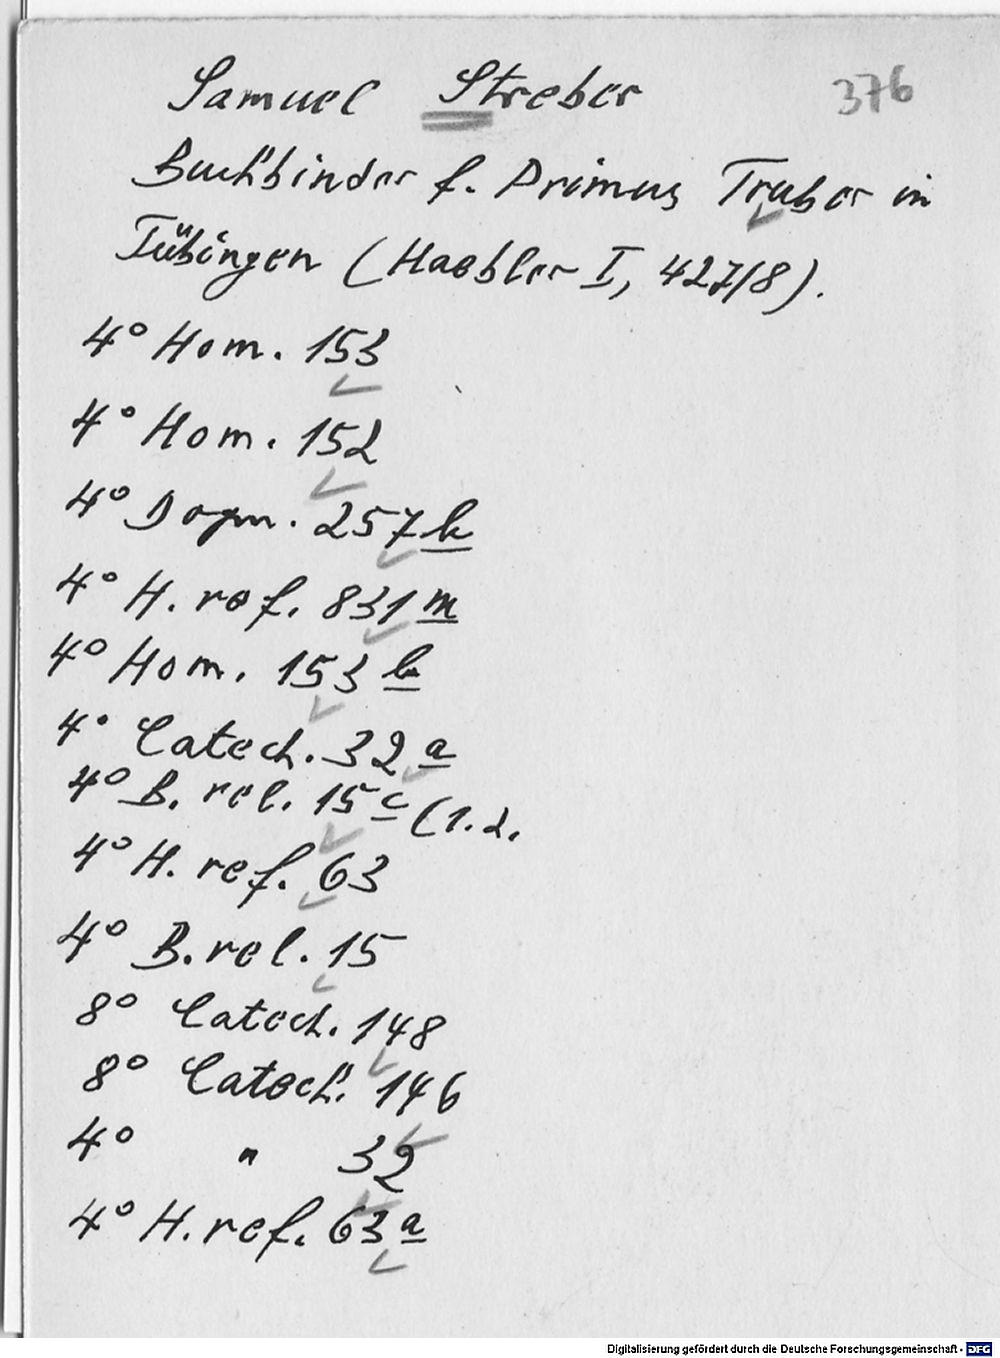 Samuel Streber 376
Buchbinder f. Primus Truber in
Tübingen (Haebler I, 427/8).
4° Hom. 153
4° Hom. 152
4° Dogm. 257 k
4° H. ref. 831 m
4° Hom. 153 k
4° Catech. 32 a
4° B. rel. 15 c (1.2.
4° H. ref. 63
4° B. rel. 15
8° Catech. 148
8° Catech. 146
4° " 32
4° H. ref. 63 a
Digitalisierung gefördert durch die Deutsche Forschungsgemeinschaft - DFG